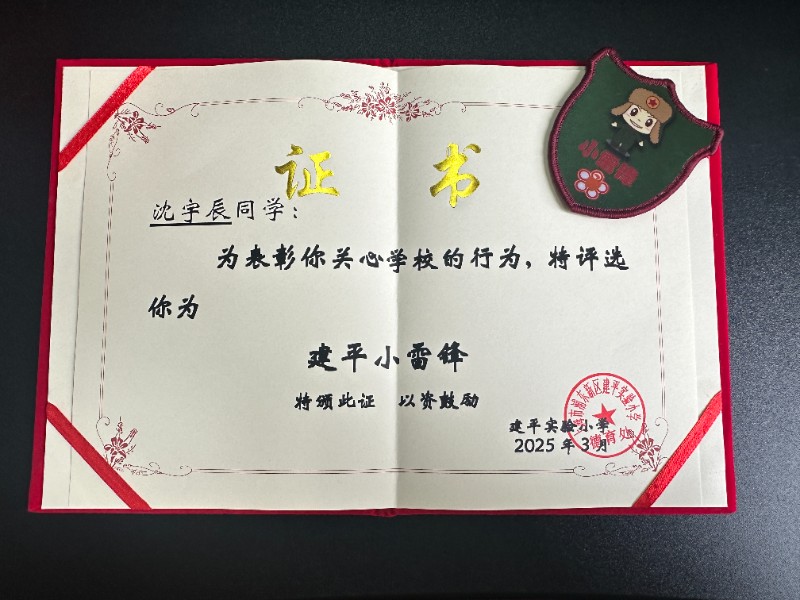 证 书
沈宇辰同学：
为表彰你关心学校的行为，特评选
你为
建平小雷锋
特颁此证 以资鼓励
建平实验小学
2025年3月
上海市浦东新区建平实验小学
德育处
小雷锋